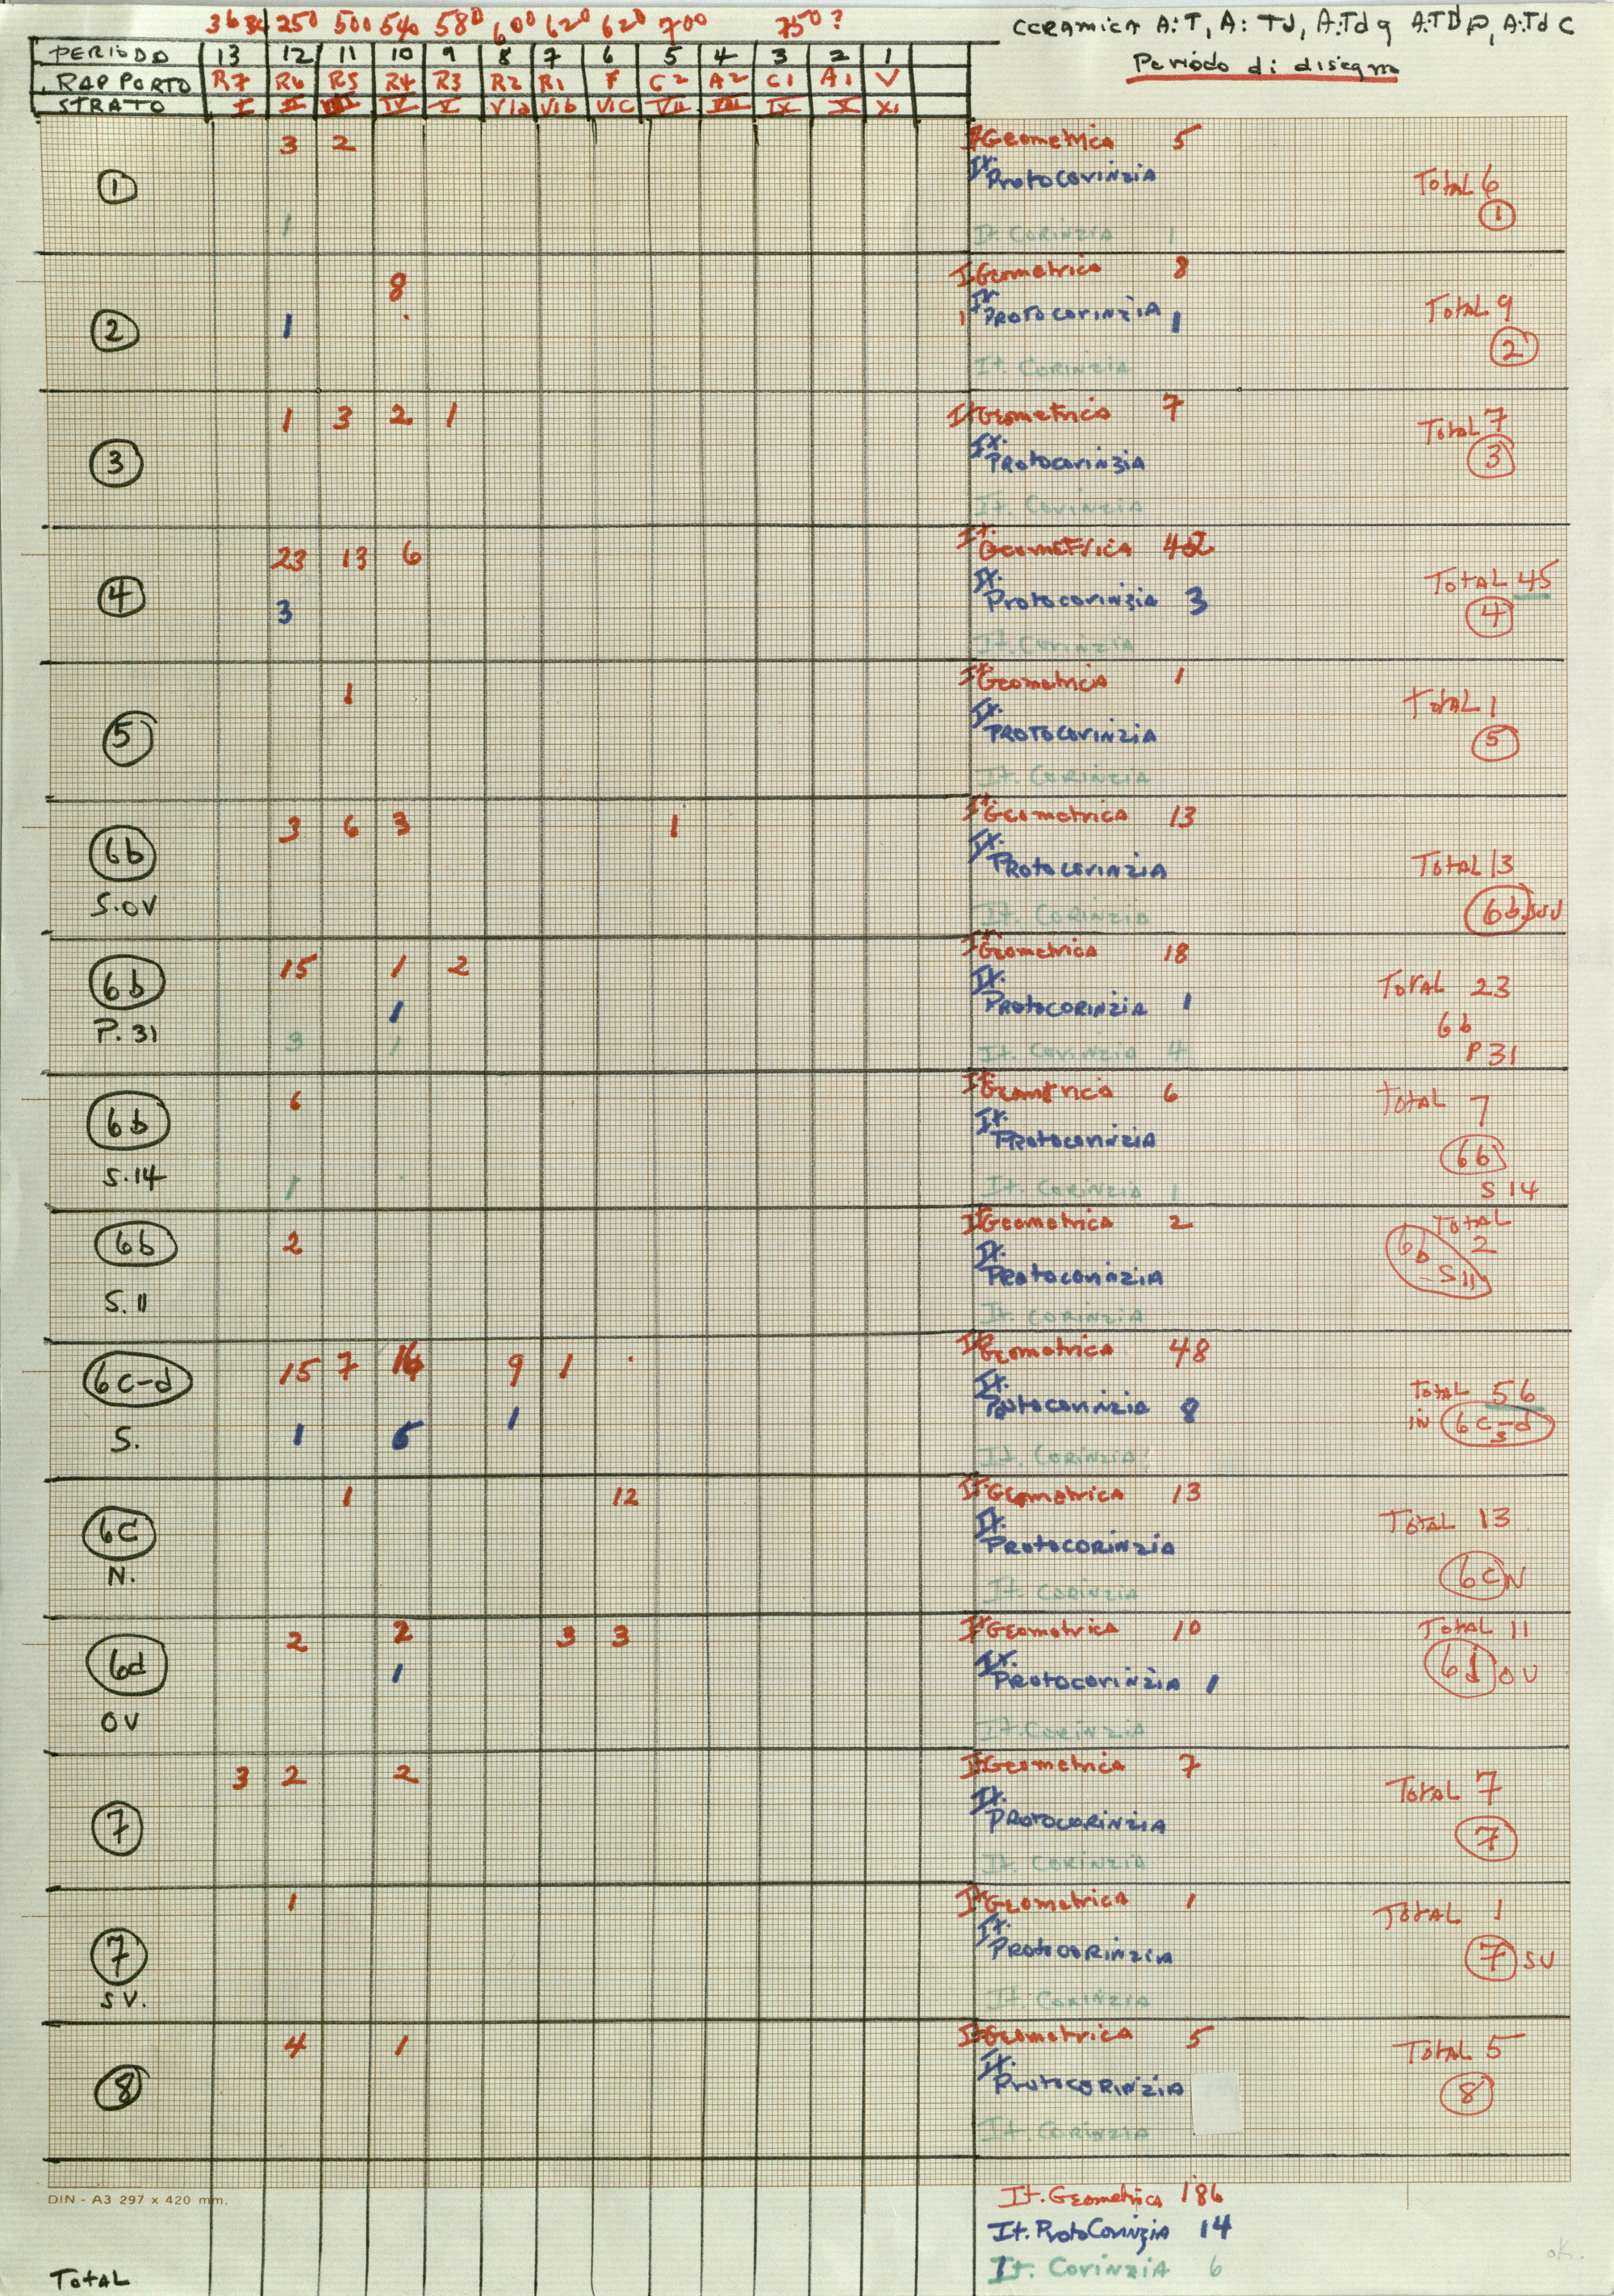 250 500 540 580 600 620 620 700 750?
CERAMICA A:T, A: Td, A:Tdg A:TDP, A:TdC
Periodo di disegno
PERIODO 13 12 11 10 9 8 7 6 5 4 3 2 1
RAPPORTO R7 R6 R5 R4 R3 R2 R1 F C2 A2 C1 A1 V
STRATO I II III IV V VIa VIb VIC VII VIII IX X XI
① 3 2 Geometrica 5
It. Protocorinzia Total 6
1 It. Corinzia 1 ①
② 8 It Geometrica 8
1 It. Protocorinzia 1 Total 9
It. Corinzia ②
③ 1 3 2 1 It Geometrica 7
It. Protocorinzia Total 7
It. Corinzia ③
④ 23 13 6 It. Geometrica 42
3 It. Protocorinzia 3 Total 45
It. Corinzia ④
⑤ 1 It Geometrica 1
It. Protocorinzia Total 1
It. Corinzia ⑤
6b 3 6 3 1 It Geometrica 13
S.OV It. Protocorinzia Total 13
It. Corinzia 6b SOV
6b 15 1 2 It Geometrica 18
P.31 1 It. Protocorinzia 1 Total 23
3 1 It. Corinzia 4 6b P31
6b 6 It Geometrica 6
S.14 It. Protocorinzia Total 7
1 It. Corinzia 1 6b S14
6b 2 It Geometrica 2
S.11 It. Protocorinzia Total 2
It. Corinzia 6b - S11
6c-d 15 7 9 1 It Geometrica 48
S. 1 1 It. Protocorinzia 8 Total 56
It. Corinzia in 6c-d S
6C 1 12 It Geometrica 13
N. It. Protocorinzia Total 13
It. Corinzia 6C N
6d 2 2 3 3 It Geometrica 10
OV 1 It. Protocorinzia 1 Total 11
It. Corinzia 6d OV
⑦ 3 2 2 It Geometrica 7
It. Protocorinzia Total 7
It. Corinzia ⑦
⑦ 1 It Geometrica 1
S V. It. Protocorinzia Total 1
It. Corinzia ⑦ SV
⑧ 4 1 It Geometrica 5
It. Protocorinzia Total 5
It. Corinzia ⑧
DIN - A3 297 x 420 mm.
It. Geometrica 186
It. ProtoCorinzia 14
It. Corinzia 6
Total
ok.